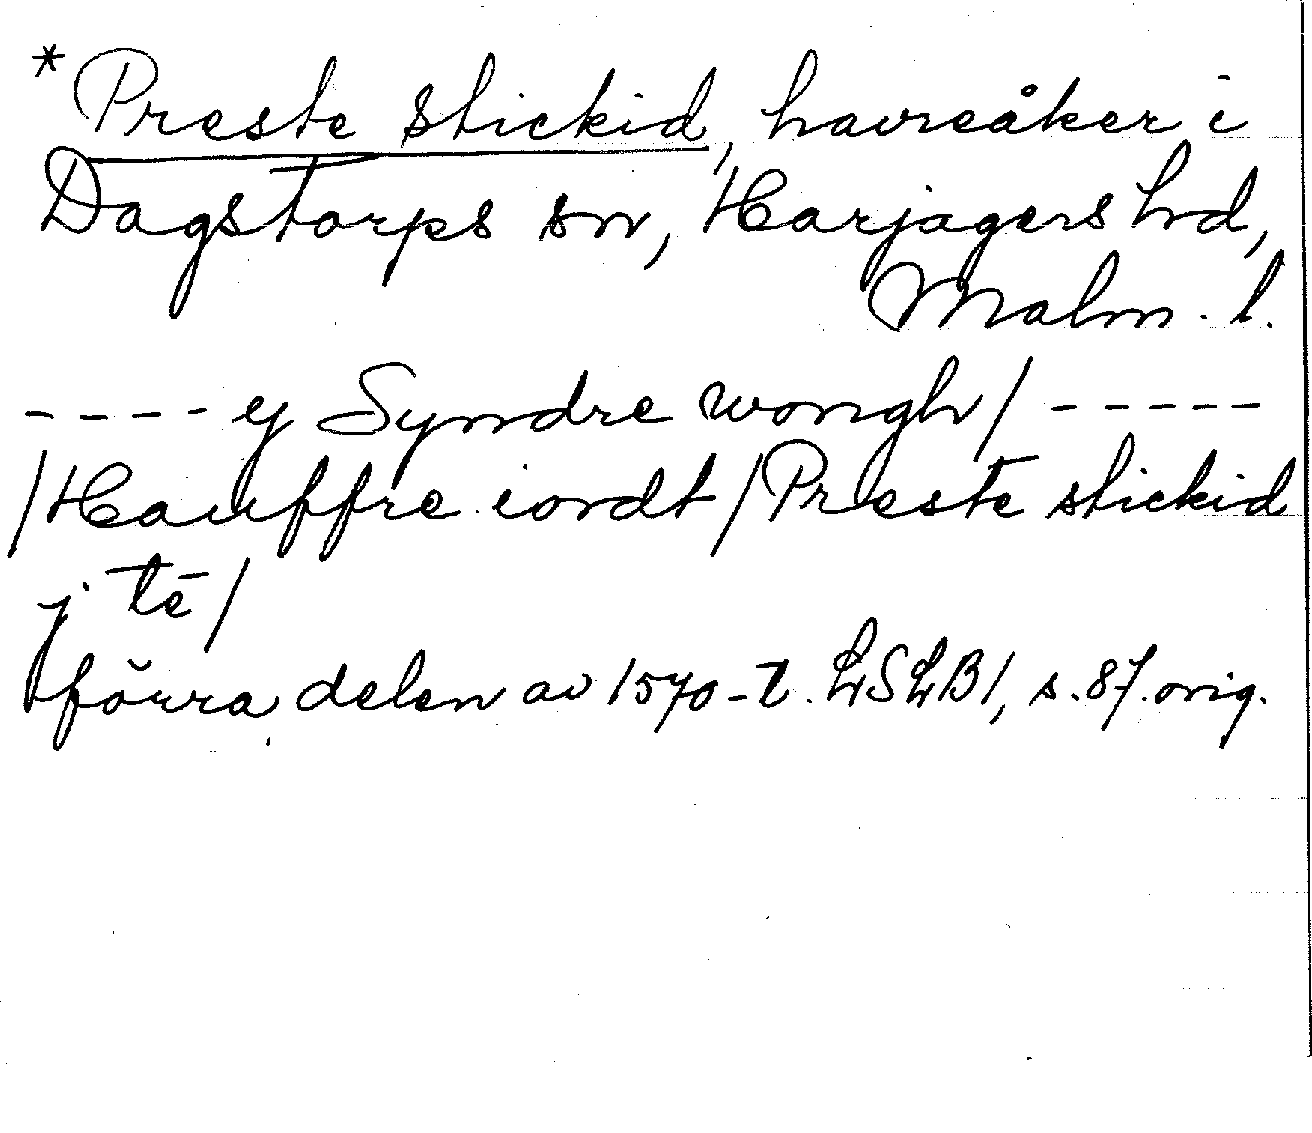 *Preste stickid, havreåker i
Dagstorps sn, Harjagers hd,
Malm. l.
---- ej Syndre wongh/ -----
/Hauffre iordt/Preste stickid
j tē/
förra delen av 1570-t. LSLB1, s.87.orig.